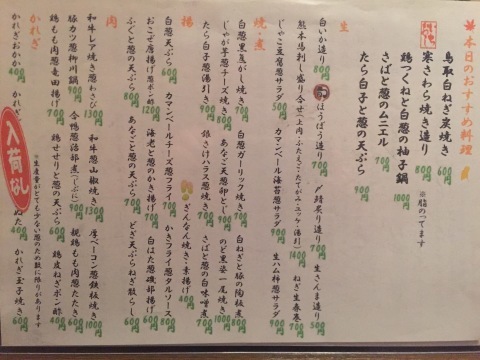 本日のおすすめ料理
鳥取白ねぎ炭焼き 600円
寒さわら焼き造り 900円 ※脂のってます
鶏つくねと白葱の柚子鍋 1000円
さばと葱のムニエル 700円
たら白子と葱の天ぷら 900円
生
白いか造り 800円 ほうぼう造り 700円 〆鯖炙り造り 700円 生さんま造り 500円
熊本馬刺し盛り合せ(上肉・ふたえご・たてがみ・ユッケ・湯引) 1400円 ねぎ生春巻 700円
じゃこ豆腐葱サラダ 500円 カマンベール海苔葱サラダ 900円 生ハム柿葱サラダ 900円
焼・煮
白葱黒焦がし焼き 700円 白葱ガーリック焼き 700円 白ねぎと豚の陶板煮 800円
じゃが芋葱チーズ焼き 800円 あなご天葱卵とじ 900円 のど黒姿一尾焼き 1000円
たら白子葱湯引き 900円 銀さけハラス葱焼き 700円 さばと葱の白味噌煮 700円
揚
白葱天ぷら 600円 カマンベールチーズ葱フライ 700円 かきフライ葱タルソース 800円
おこぜ唐揚げ葱ポン酢 1200円 海老と葱のかき揚げ 700円 白はた葱磯部揚げ 700円
ふぐと葱の天ぷら 800円 あなごと葱の天ぷら 700円 どぎ天ぷらねぎ散らし 600円
ぎんなん焼き・素揚げ 400円
肉
和牛レア焼き葱わさび 1300円 和牛葱山椒焼き 1300円 厚ベーコン葱鉄板焼き 1000円
豚カツ葱柳川鍋 900円 合鴨葱治部煮(じぶに) 900円 親鶏もも葱たたき 600円
鶏もも肉葱竜田揚げ 700円 鶏せせりと葱の天ぷら 600円 鶏皮ねぎポン酢 400円
かれぎ ※生産者がとても少ない葱のため数に限りがあります
かれぎおかか 400円 かれぎ ぬた 400円 かれぎ玉子焼き 600円
入荷なし